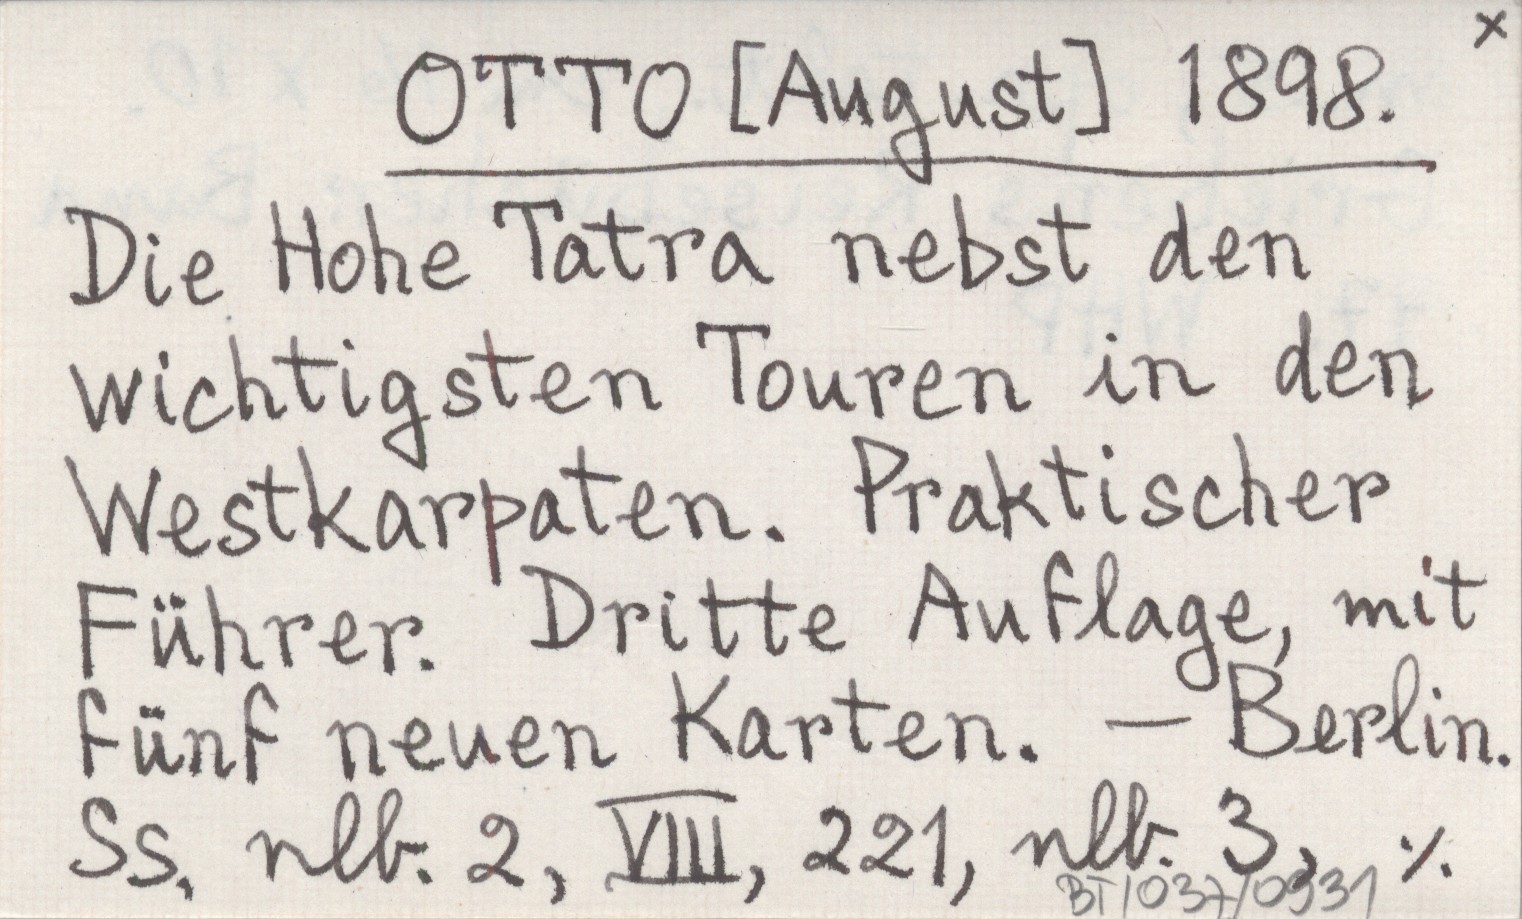 x
OTTO [August] 1898.
Die Hohe Tatra nebst den
wichtigsten Touren in den
Westkarpaten. Praktischer
Führer. Dritte Auflage, mit
fünf neuen Karten. — Berlin.
Ss. nlb. 2, VIII, 221, nlb. 3, ./.
BT/037/0931